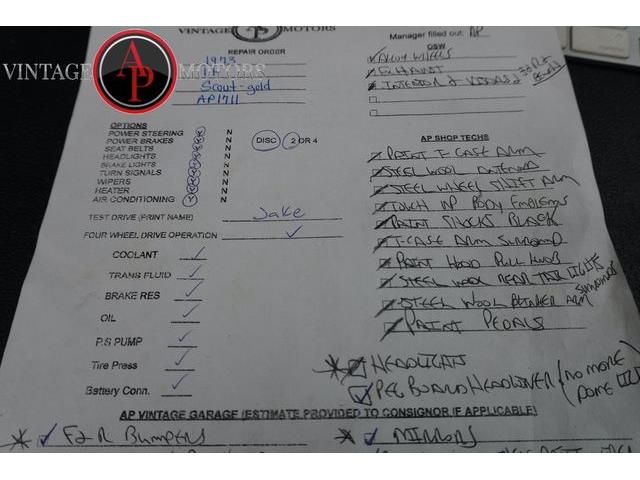 VINTAGE AP MOTORS
VINTAGE AP MOTORS
REPAIR ORDER
1973
IH
Scout-gold
AP1711
Manager filled out: AP
OSW
ALLOY WHEELS
EXHAUST
INTERIOR & VISORS
OPTIONS
POWER STEERING Y N
POWER BRAKES Y N DISC 2 OR 4
SEAT BELTS Y N
HEADLIGHTS Y N
BRAKE LIGHTS Y N
TURN SIGNALS Y N
WIPERS Y N
HEATER Y N
AIR CONDITIONING Y N
TEST DRIVE (PRINT NAME) Jake
FOUR WHEEL DRIVE OPERATION ✓
COOLANT ✓
TRANS FLUID ✓
BRAKE RES ✓
OIL ✓
P.S PUMP ✓
Tire Press ✓
Battery Conn. ✓
AP SHOP TECHS
PAINT T-CASE ARM
STEEL WOOL ANTENNA
STEEL WHEEL SHIFT ARM
TOUCH UP BODY EMBLEMS
PAINT SHOCKS BLACK
T-CASE ARM SURROUND
PAINT HOOD PULL KNOB
STEEL WOOL REAR TAIL LIGHTS SURROUNDS
STEEL WOOL BLINKER ARM
PAINT PEDALS
* HEADLIGHTS
✓ PEG BOARD HEADLINER (NO MORE DOME
AP VINTAGE GARAGE (ESTIMATE PROVIDED TO CONSIGNOR IF APPLICABLE)
* ✓ F&R BUMPERS
* ✓ MIRRORS